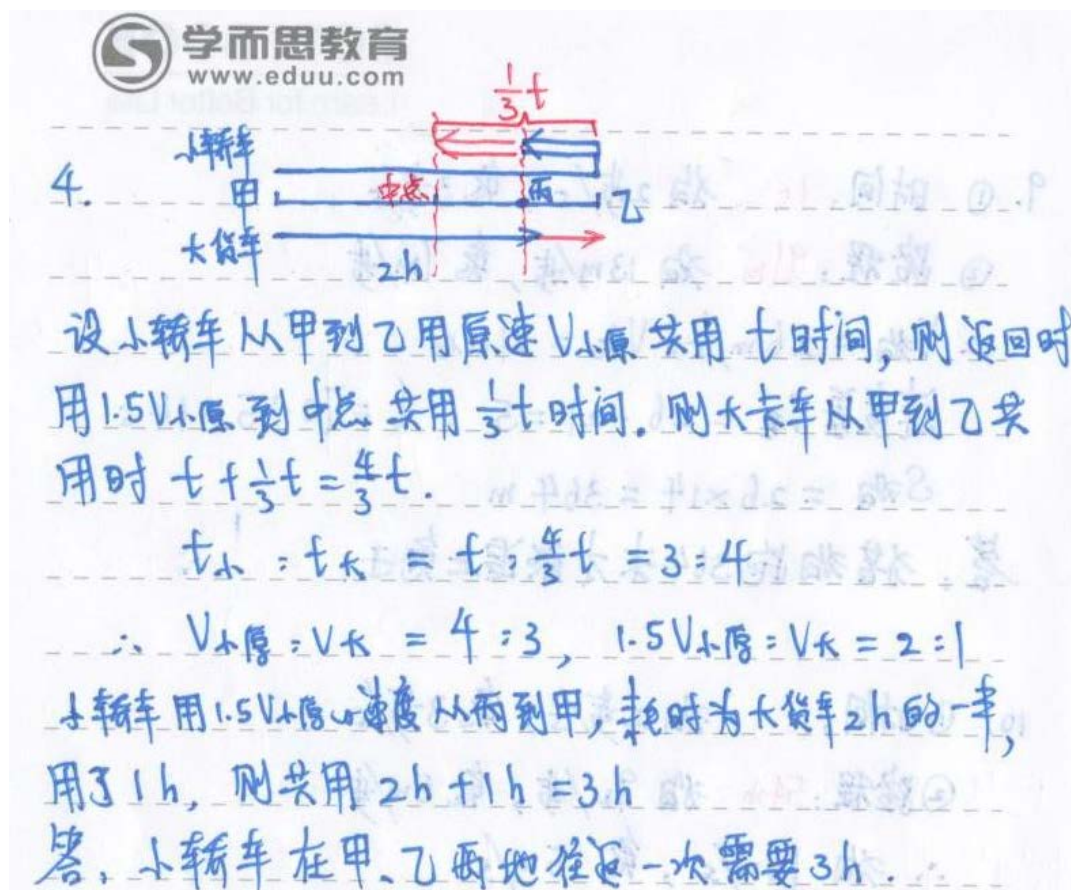 学而思教育
www.eduu.com
1/3 t
小轿车
4.
甲
中点
丙
乙
大货车
2h
设小轿车从甲到乙用原速V小原共用 t 时间,则返回时
用1.5V小原到中点共用 1/3 t 时间. 则大卡车从甲到乙共
用时 t + 1/3 t = 4/3 t.
t小 : t大 = t : 4/3 t = 3:4
∴ V小原 : V大 = 4:3, 1.5V小原 : V大 = 2:1
小轿车用1.5V小原的速度从丙到甲,耗时为大货车2h的一半,
用了1h, 则共用 2h+1h=3h
答:小轿车在甲、乙两地往返一次需要3h.